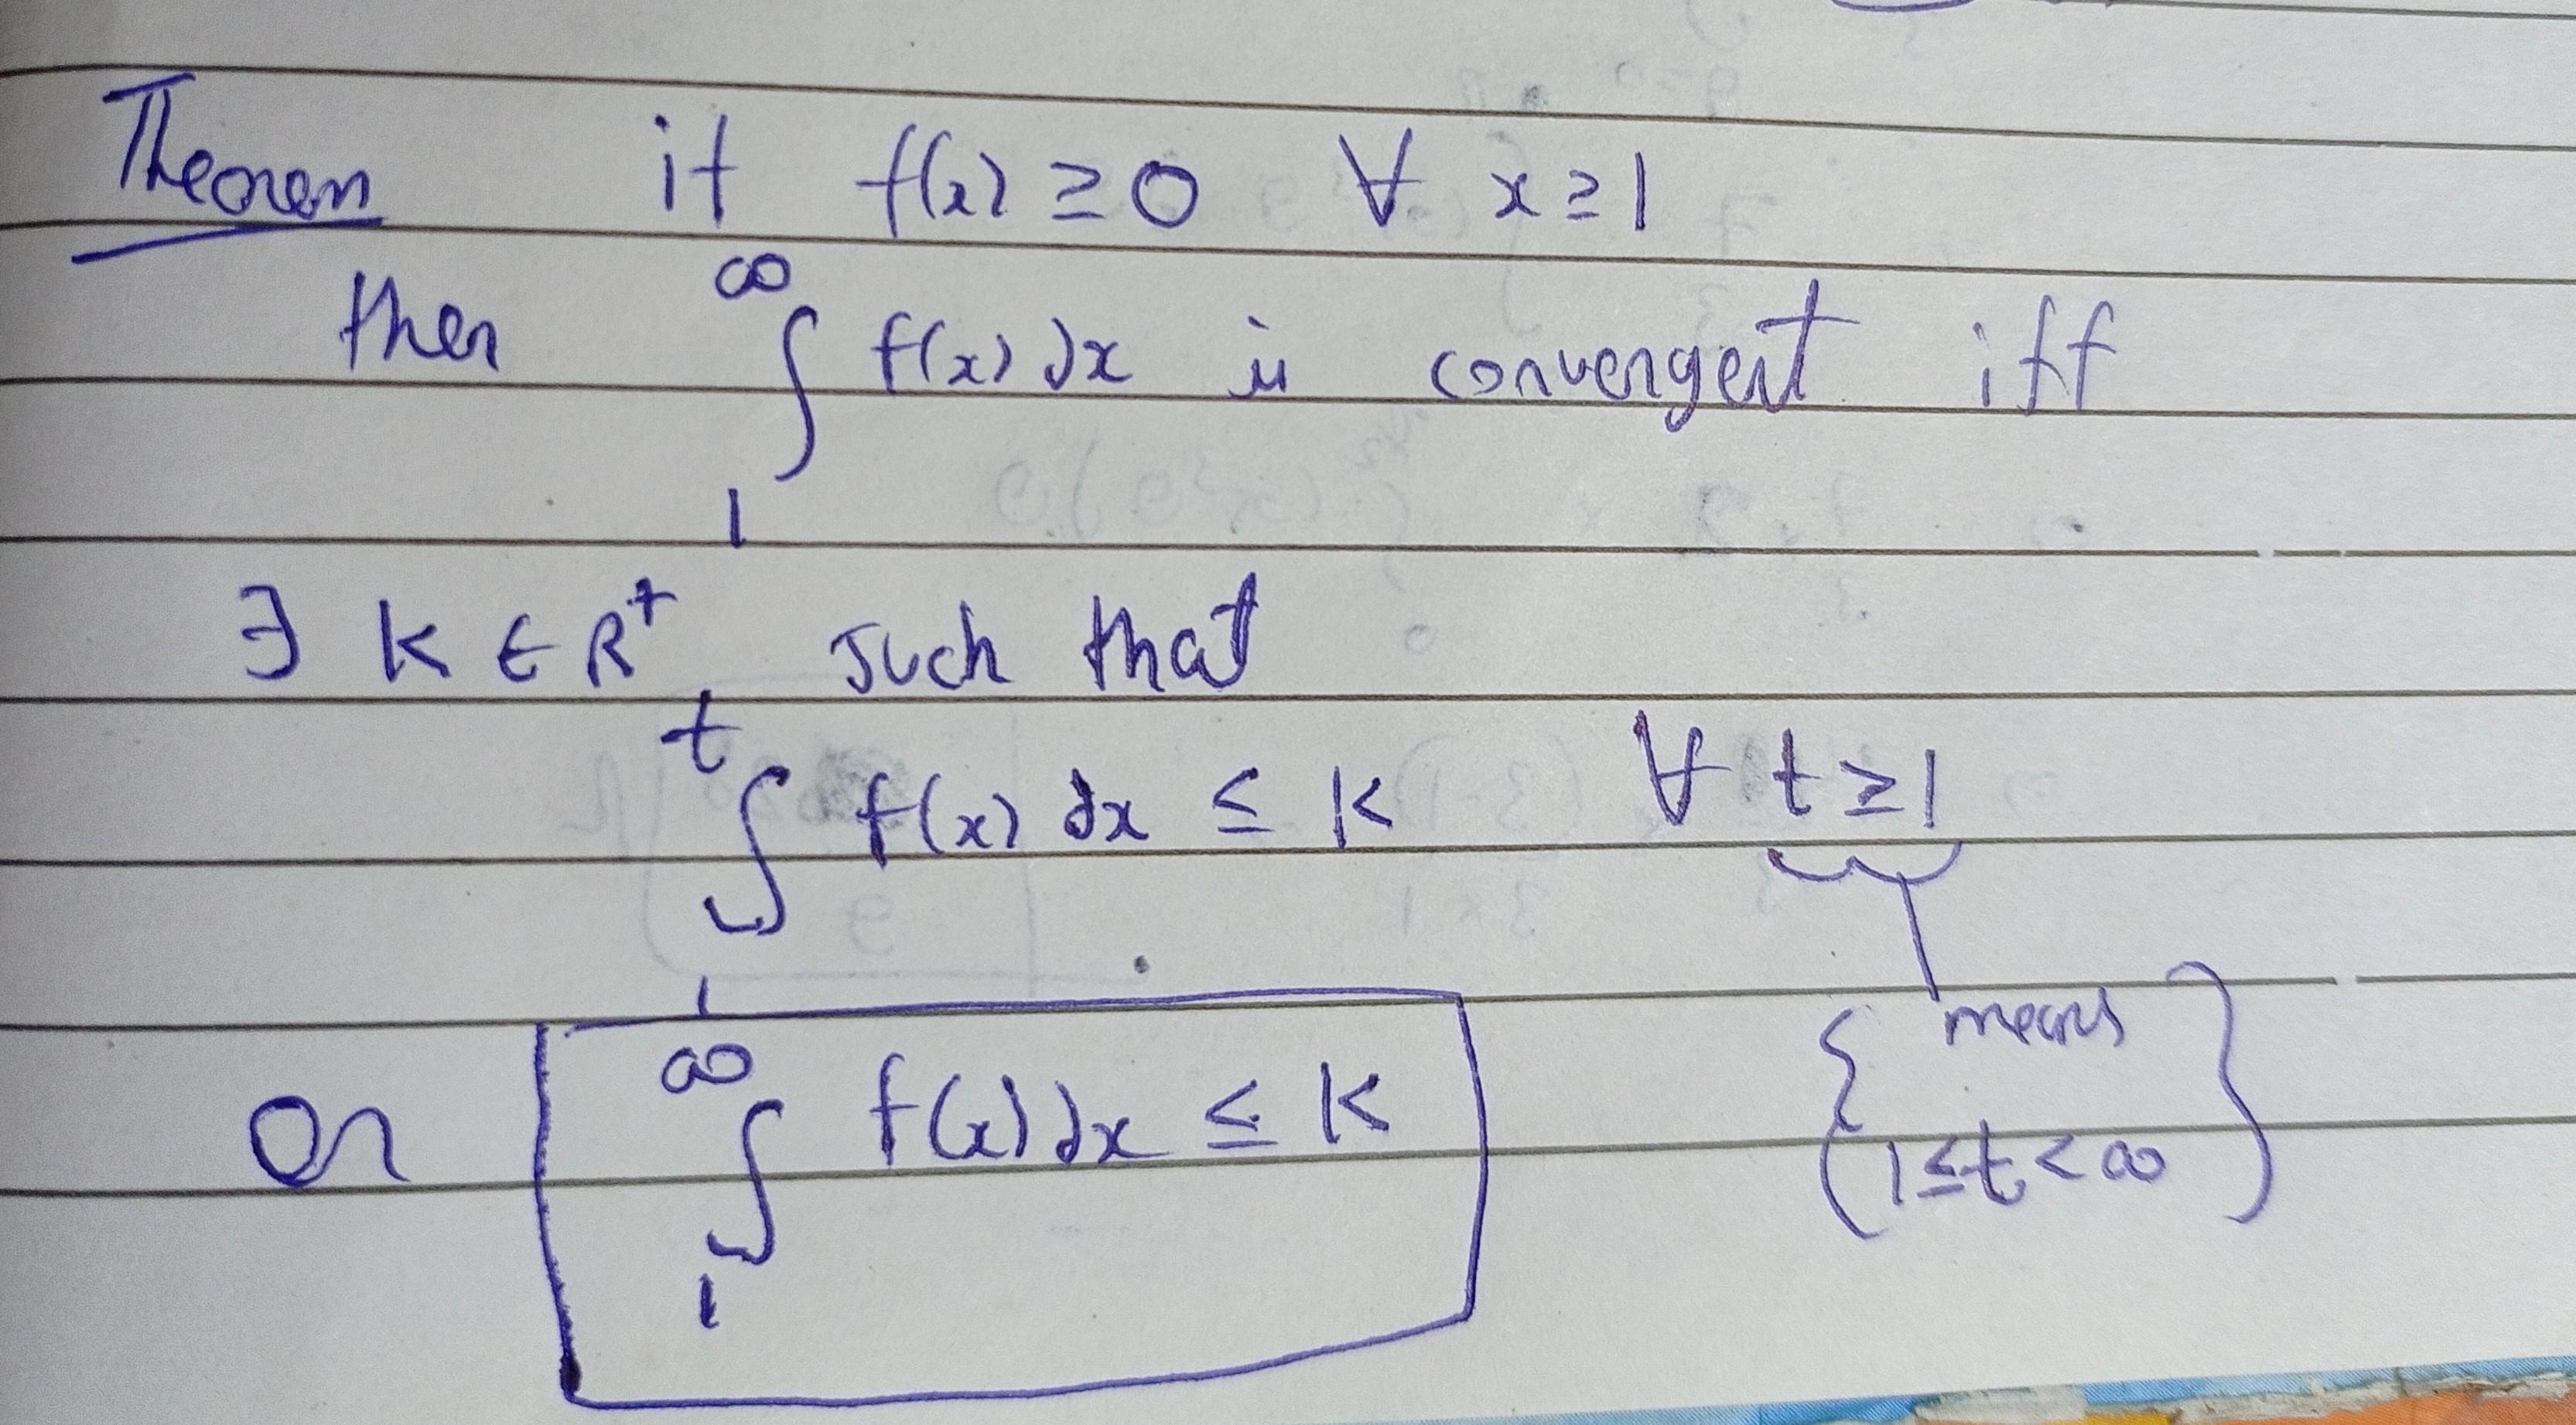 Theorem if f(x) ≥ 0 ∀ x ≥ 1
then ∫₁^∞ f(x) dx is convergent iff
∃ K ∈ R⁺ such that
∫₁^t f(x) dx ≤ K ∀ t ≥ 1
or ∫₁^∞ f(x) dx ≤ K
{ means
1 ≤ t < ∞ }